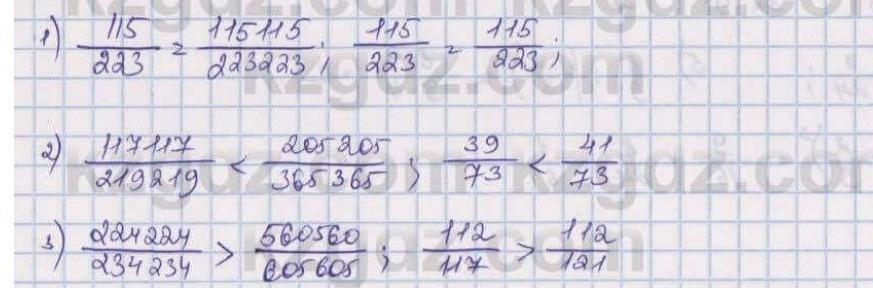 1) 115/223 = 115115/223223; 115/223 = 115/223;
2) 117117/219219 < 205205/365365; 39/73 < 41/73
3) 224224/234234 > 560560/605605; 112/117 > 112/121
kzgdz.com